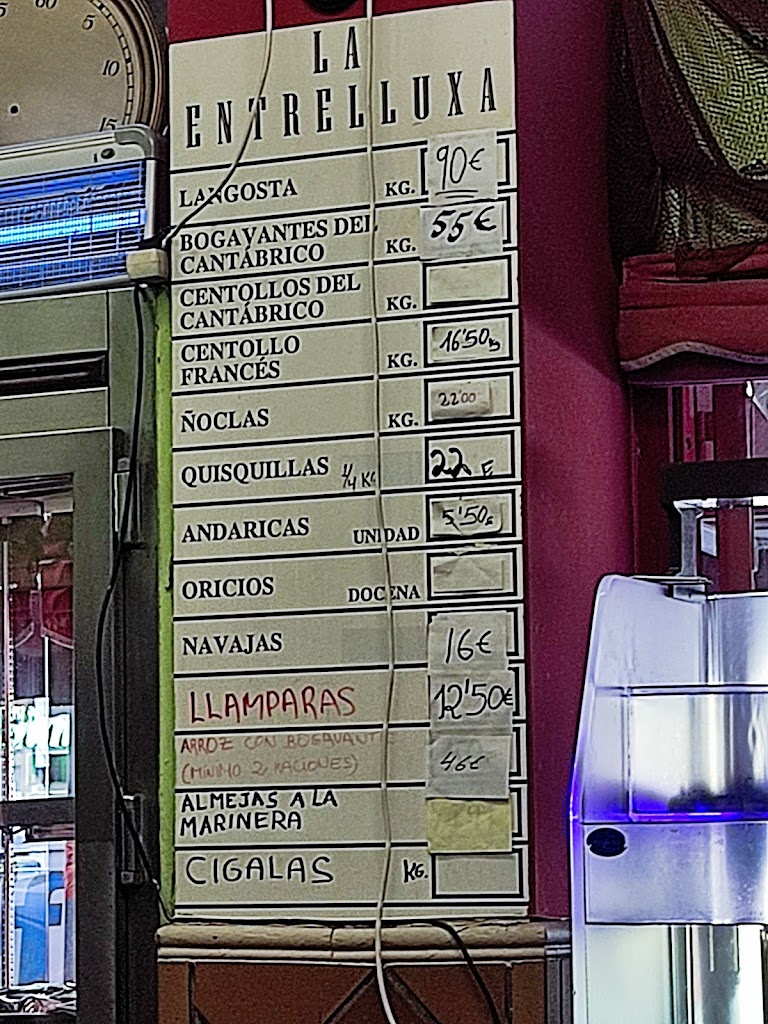 60
5
10
15
LA
ENTRELLUXA
LANGOSTA KG. 90€
BOGAVANTES DEL
CANTÁBRICO KG. 55€
CENTOLLOS DEL
CANTÁBRICO KG.
CENTOLLO
FRANCÉS KG. 16'50
ÑOCLAS KG. 22'00
QUISQUILLAS 1/4 KG 22 €
ANDARICAS UNIDAD 5'50€
ORICIOS DOCENA
NAVAJAS 16€
LLAMPARAS 12'50€
ARROZ CON BOGAVANTE
(MÍNIMO 2 RACIONES) 46€
ALMEJAS A LA
MARINERA
CIGALAS KG.